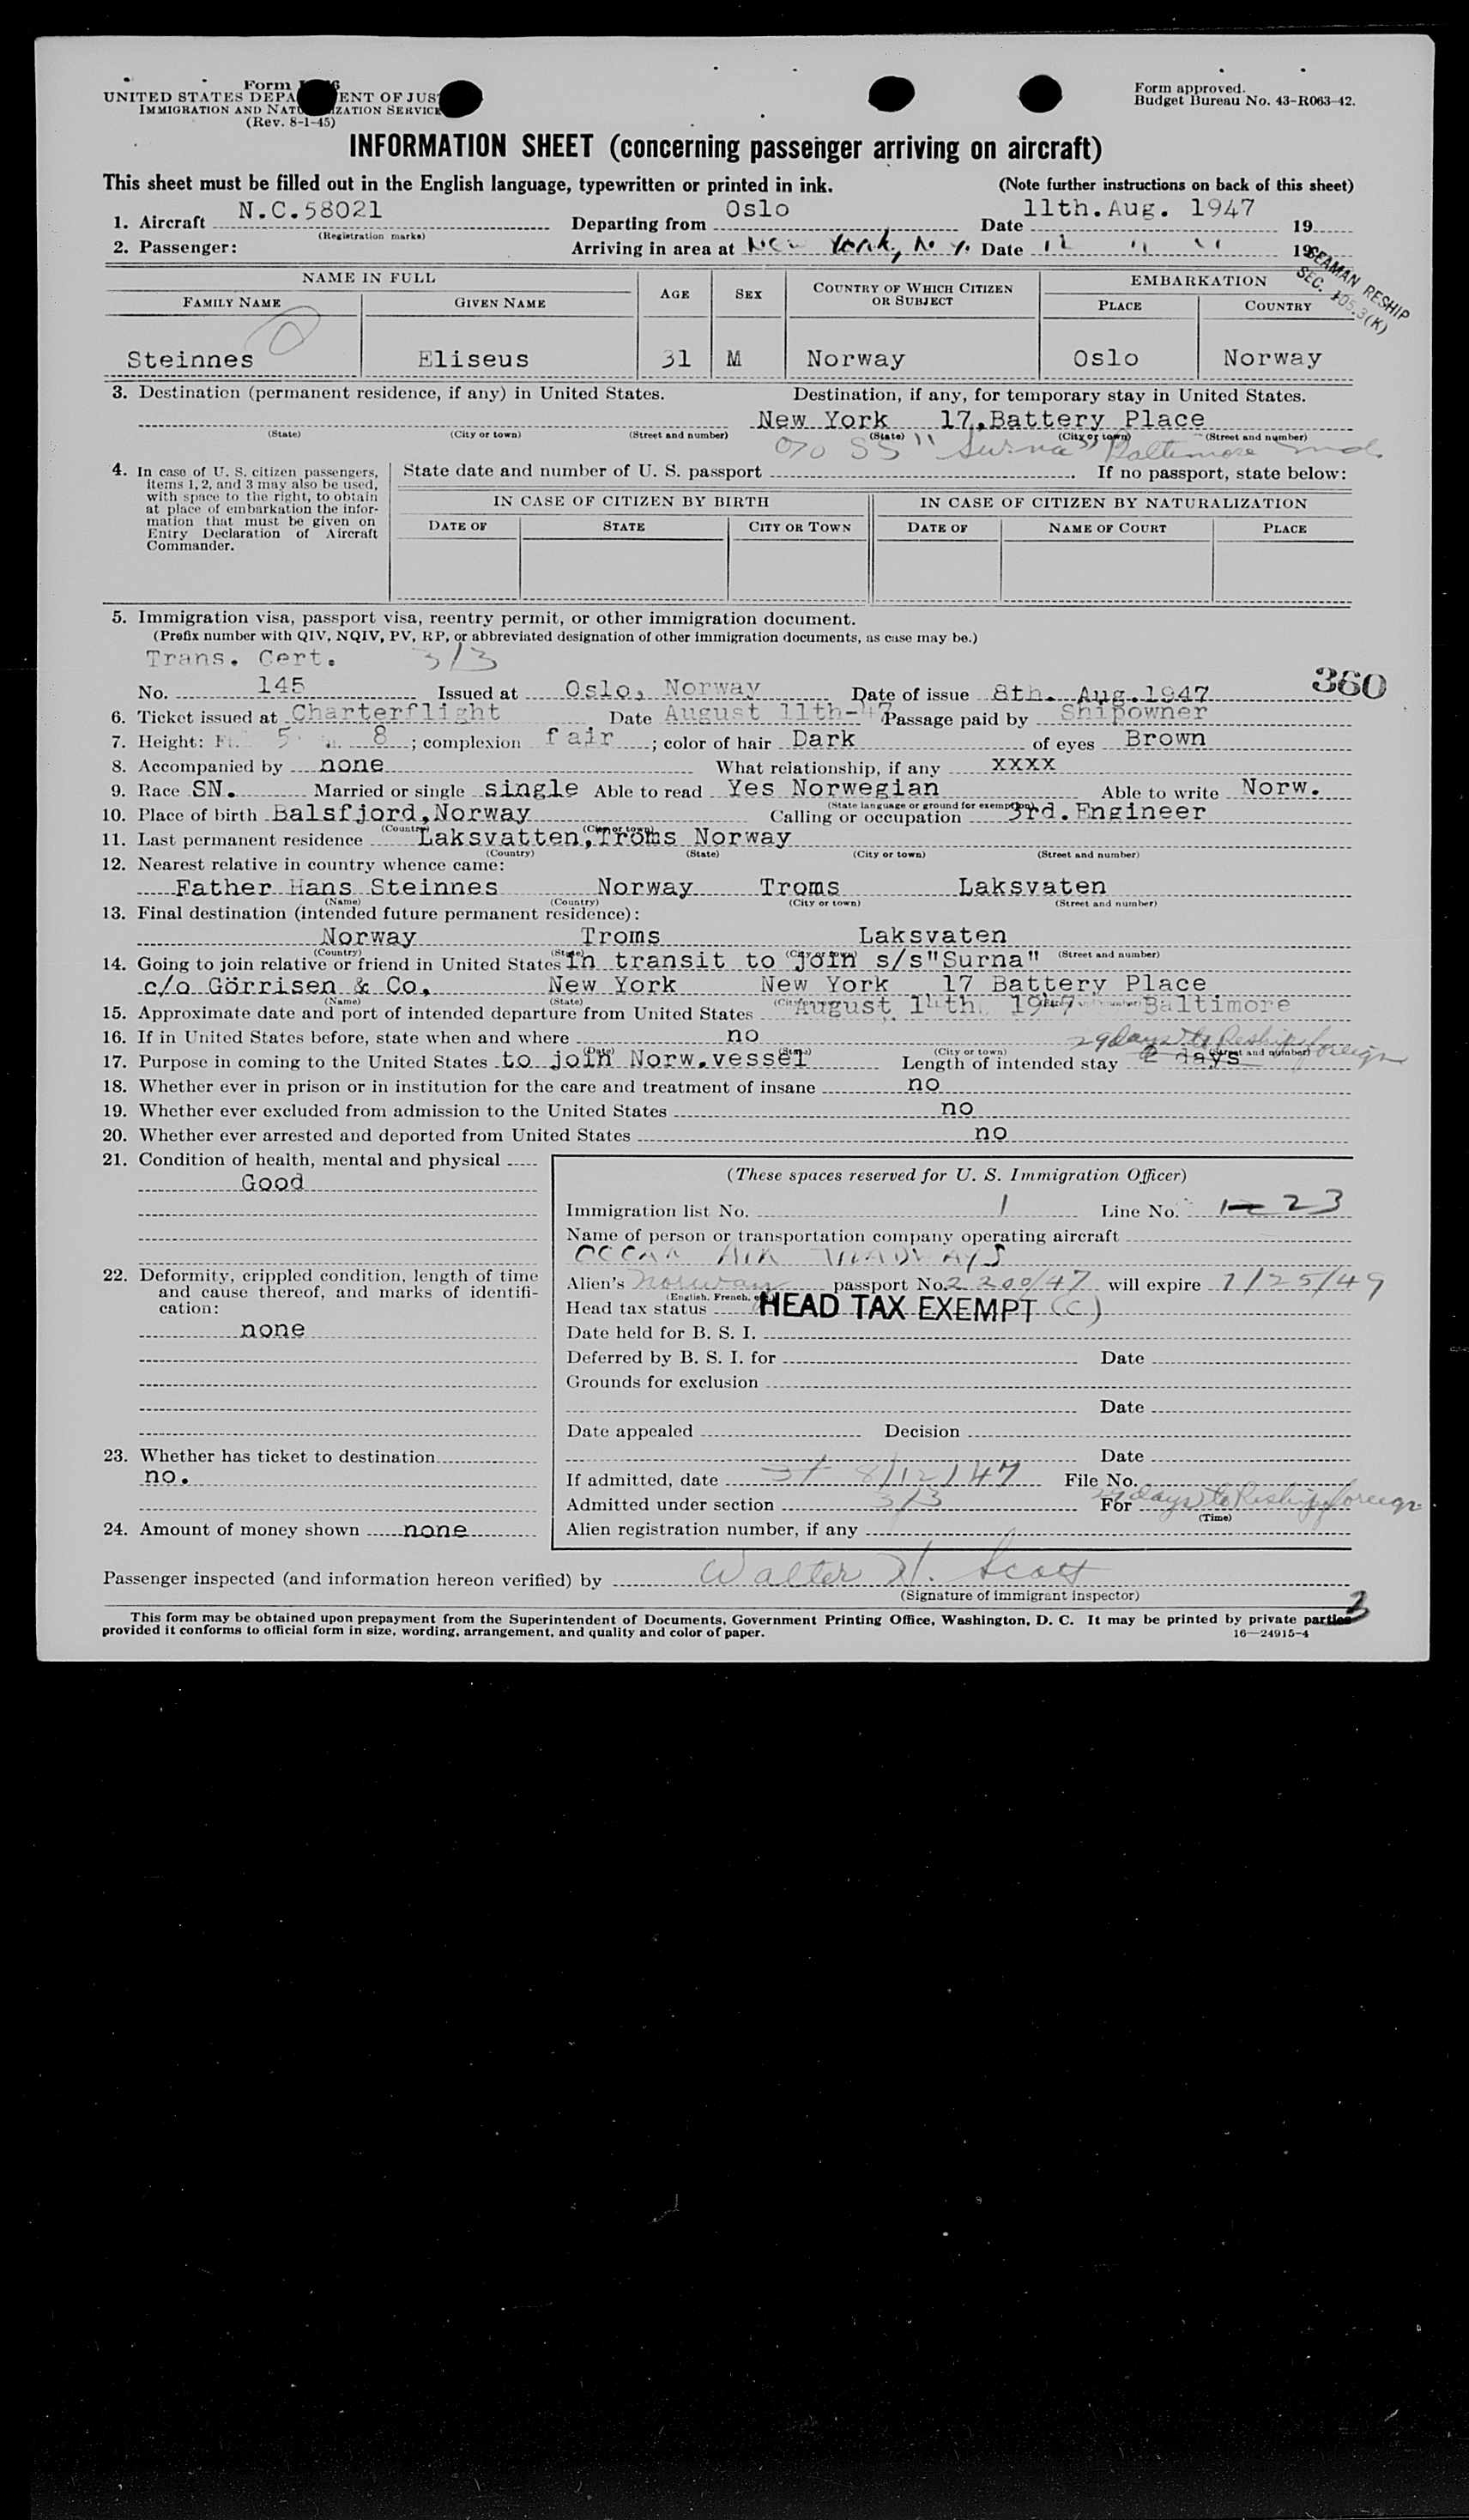 Form
UNITED STATES DEPA ENT OF JUS
IMMIGRATION AND NATU IZATION SERVICE
(Rev. 8-1-45)
Form approved.
Budget Bureau No. 43-R063-42.
INFORMATION SHEET (concerning passenger arriving on aircraft)
This sheet must be filled out in the English language, typewritten or printed in ink. (Note further instructions on back of this sheet)
1. Aircraft N.C.58021 Departing from Oslo Date 11th.Aug. 1947 19
(Registration marks)
2. Passenger: Arriving in area at New York, N.Y. Date 12 " " 19
SEAMAN RESHIP
SEC. 105.3(K)
NAME IN FULL AGE SEX COUNTRY OF WHICH CITIZEN OR SUBJECT EMBARKATION
FAMILY NAME GIVEN NAME PLACE COUNTRY
Steinnes Eliseus 31 M Norway Oslo Norway
3. Destination (permanent residence, if any) in United States. Destination, if any, for temporary stay in United States.
New York 17,Battery Place
(State) (City or town) (Street and number) (State) (City or town) (Street and number)
c/o SS "Surna" Baltimore Md.
4. In case of U. S. citizen passengers, items 1, 2, and 3 may also be used, with space to the right, to obtain at place of embarkation the information that must be given on Entry Declaration of Aircraft Commander.
State date and number of U. S. passport . If no passport, state below:
IN CASE OF CITIZEN BY BIRTH IN CASE OF CITIZEN BY NATURALIZATION
DATE OF STATE CITY OR TOWN DATE OF NAME OF COURT PLACE
5. Immigration visa, passport visa, reentry permit, or other immigration document.
(Prefix number with QIV, NQIV, PV, RP, or abbreviated designation of other immigration documents, as case may be.)
Trans. Cert. 3/3
No. 145 Issued at Oslo, Norway Date of issue 8th. Aug.1947 360
6. Ticket issued at Charterflight Date August 11th-47 Passage paid by Shipowner
7. Height: Ft. 5 in. 8 ; complexion fair ; color of hair Dark of eyes Brown
8. Accompanied by none What relationship, if any xxxx
9. Race SN. Married or single single Able to read Yes Norwegian Able to write Norw.
(State language or ground for exemption)
10. Place of birth Balsfjord,Norway Calling or occupation 3rd.Engineer
(Country) (City or town)
11. Last permanent residence Laksvatten,Troms Norway
(Country) (State) (City or town) (Street and number)
12. Nearest relative in country whence came:
Father Hans Steinnes Norway Troms Laksvaten
(Name) (Country) (City or town) (Street and number)
13. Final destination (intended future permanent residence):
Norway Troms Laksvaten
(Country) (State) (City or town) (Street and number)
14. Going to join relative or friend in United States in transit to join s/s"Surna"
c/o Görrisen & Co, New York New York 17 Battery Place
(Name) (State) (City or town) (Street and number)
15. Approximate date and port of intended departure from United States August 14th 1947 Baltimore
16. If in United States before, state when and where no
(Date) (State) (City or town) (Street and number)
29 days to Reship foreign
17. Purpose in coming to the United States to join Norw.vessel Length of intended stay 2 days
18. Whether ever in prison or in institution for the care and treatment of insane no
19. Whether ever excluded from admission to the United States no
20. Whether ever arrested and deported from United States no
21. Condition of health, mental and physical
Good
22. Deformity, crippled condition, length of time and cause thereof, and marks of identification:
none
23. Whether has ticket to destination
no.
24. Amount of money shown none
(These spaces reserved for U. S. Immigration Officer)
Immigration list No. 1 Line No. 23
Name of person or transportation company operating aircraft
OCEAN AIR TRADWAYS
Alien's Norway passport No. 2200/47 will expire 7/25/49
(English, French, etc.)
Head tax status HEAD TAX EXEMPT (C)
Date held for B. S. I.
Deferred by B. S. I. for Date
Grounds for exclusion
Date
Date appealed Decision
Date
If admitted, date 8/12/47 File No.
Admitted under section 3/3 For 29 days to Reship foreign
(Time)
Alien registration number, if any
Passenger inspected (and information hereon verified) by Walter H. Scott
(Signature of immigrant inspector)
3
This form may be obtained upon prepayment from the Superintendent of Documents, Government Printing Office, Washington, D. C. It may be printed by private parties
provided it conforms to official form in size, wording, arrangement, and quality and color of paper. 16—24915-4